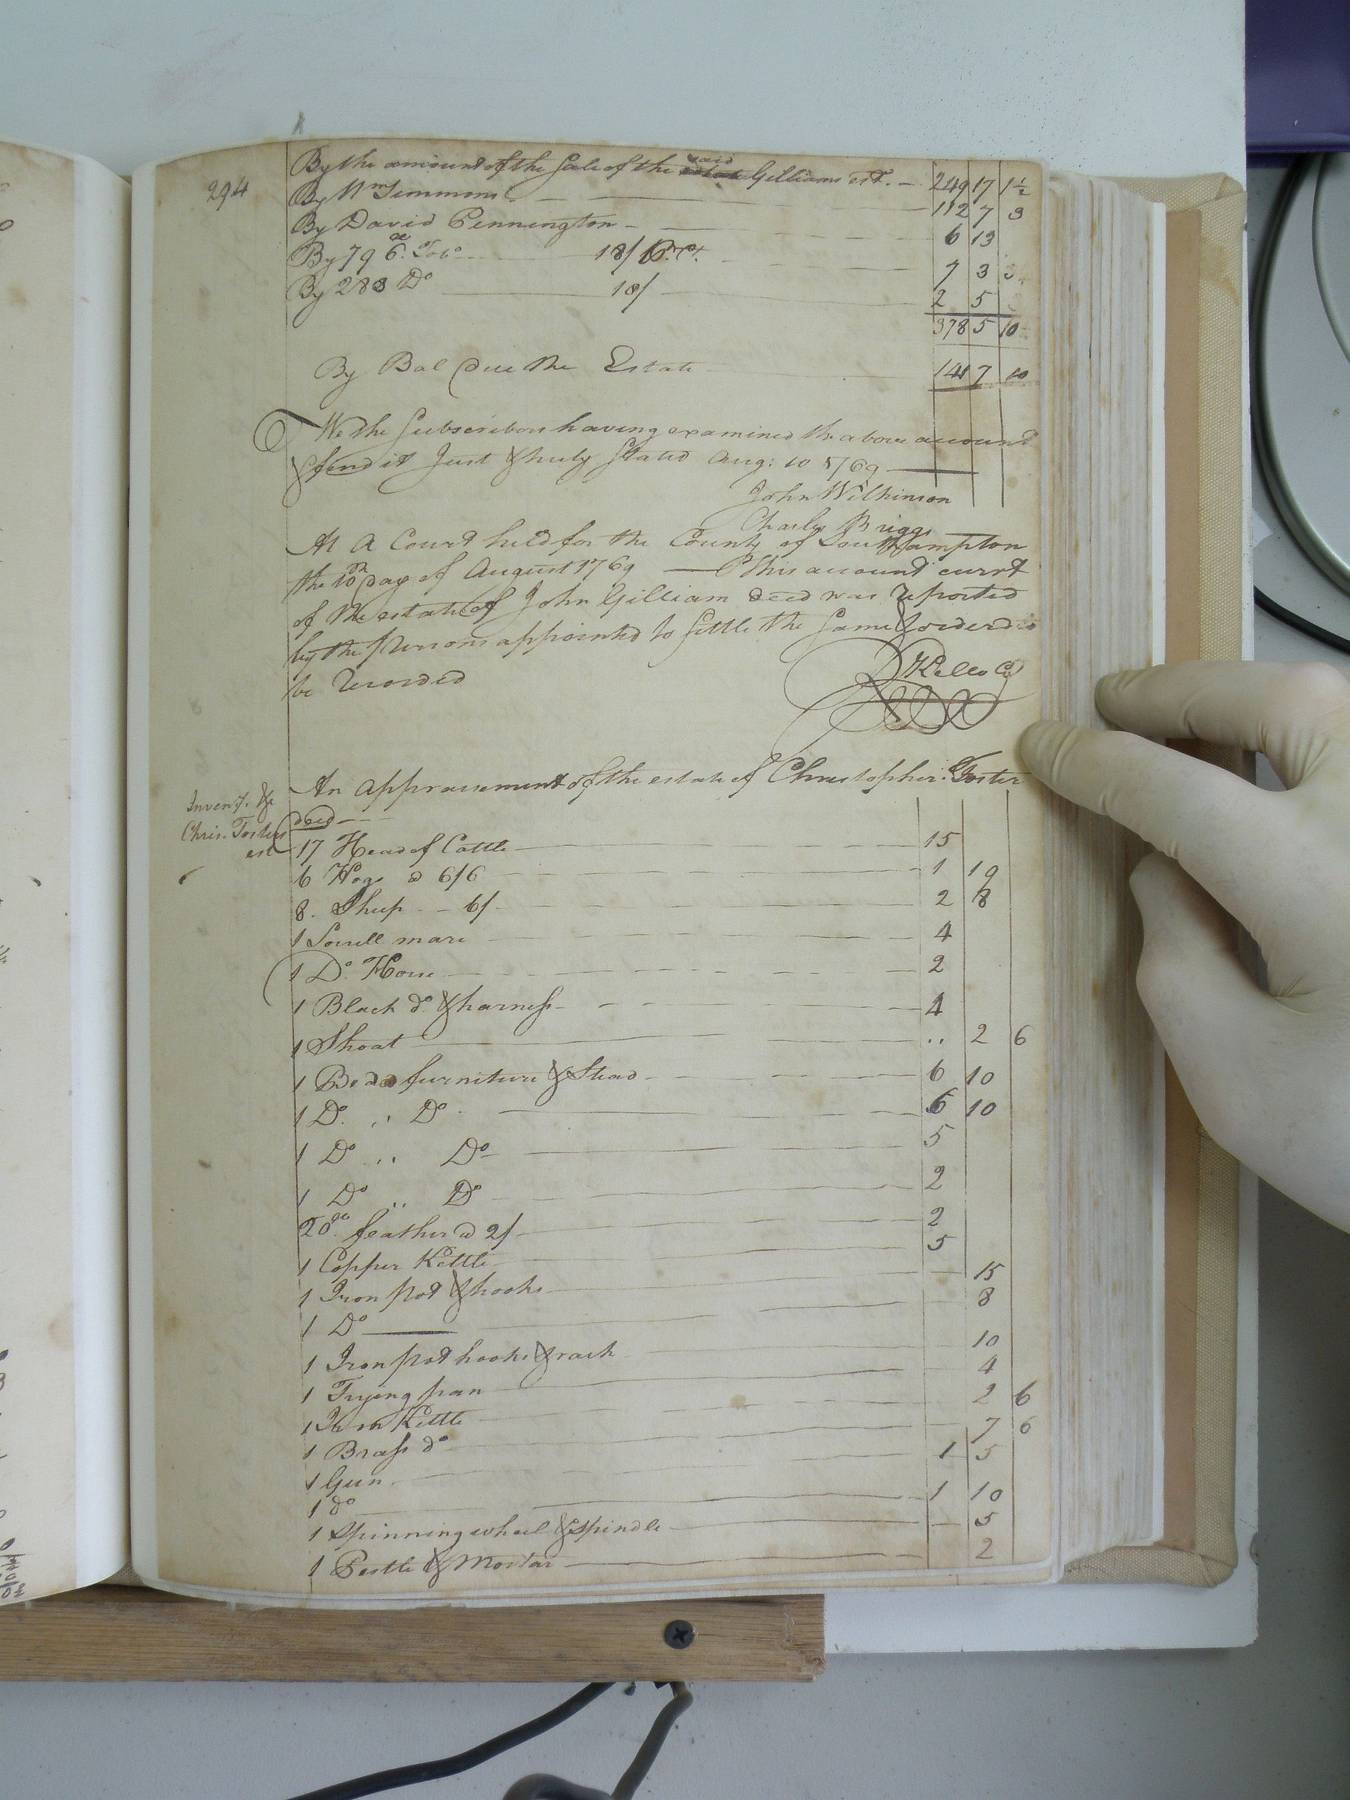 294
By the amount of the Sale of the said Gilliams est. 249 17 1½
By Wm Simmons 112 7 3
By David Pennington 6 13
By 796 Tobo 18/ Pr Ct. 7 3 3
By 283 Do 18/ 2 5
378 5 10
By Bal due the Estate 141 7 10
We the Subscribers having examined the above account
& find it Just & truly Stated Aug: 10 1769
John Wilkinson
Charles Briggs
At A Court held for the County of Southampton
the 10th day of August 1769 This account currt
of the estate of John Gilliam decd was reported
by the persons appointed to settle the same & orderd to
be recorded
R Kello C
An appraisement of the estate of Christopher Foster
Invent. &c
Chris. Fosters
est
decd
17 Head of Cattle 15
6 Hogs @ 6/6 1 19
8. Sheep 6/ 2 8
1 Sorrell mare 4
1 Do. Horse 2
1 Black do. & harness 4
1 Shoat .. 2 6
1 Bed furniture & Stead 6 10
1 Do. ,, Do 6 10
1 Do ,, Do 5
1 Do ,, Do 2
20 feathers @ 2/ 2
1 Copper Kettle 5
1 Iron pot & hooks 15
1 Do 8
1 Iron pot hooks & rack 10
1 Frying pan 4
1 Kettle 2 6
1 Brass do 7 6
1 Gun 1 5
1 do 1 10
1 Spinning wheel & spindle 5
1 Pestle & Mortar 2